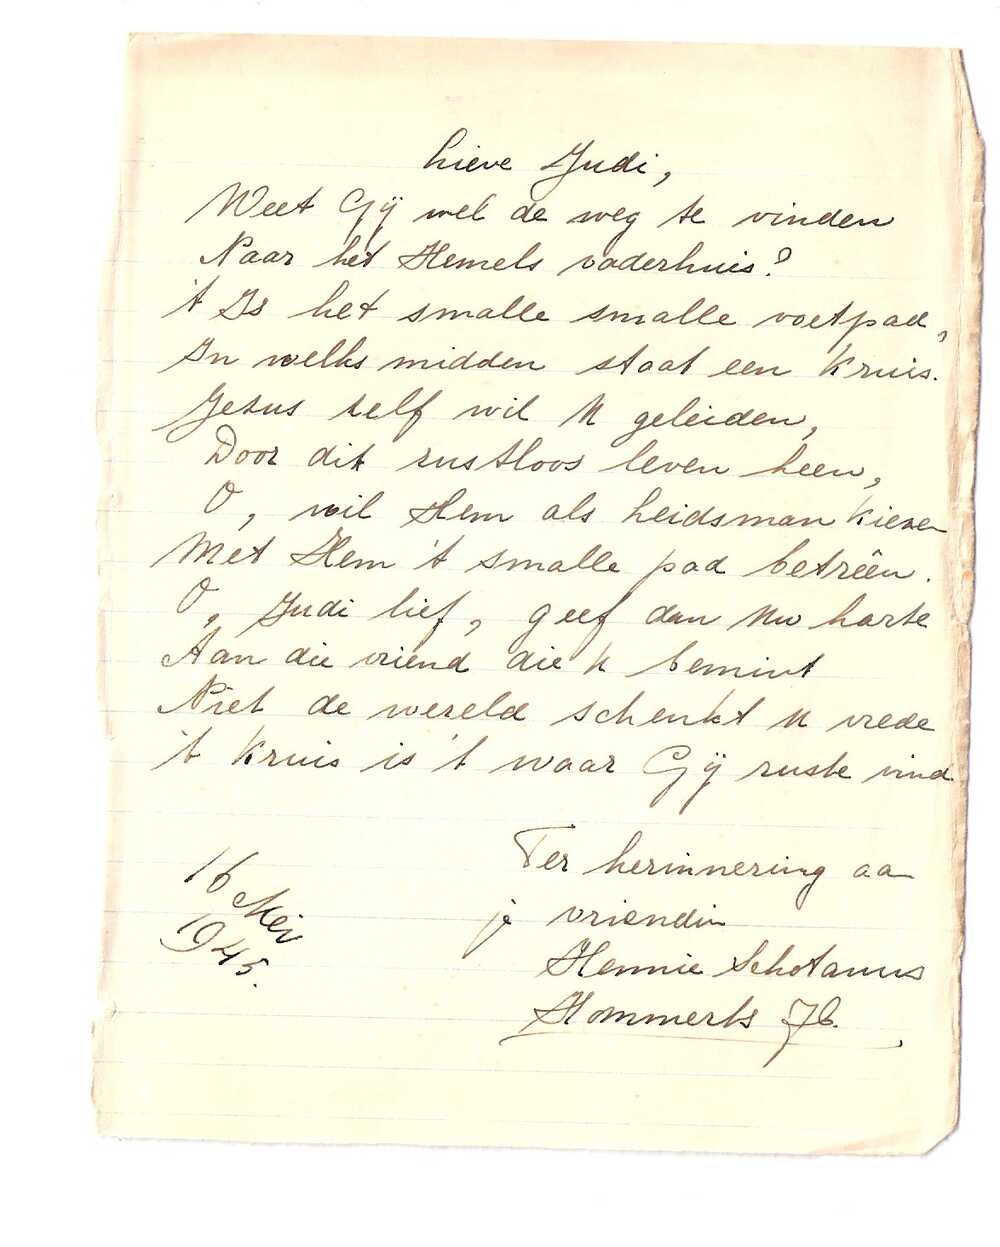 Lieve Judi,
Weet Gÿ wel de weg te vinden
Naar het Hemels vaderhuis?
't Is het smalle smalle voetpad,
In welks midden staat een kruis.
Jezus zelf wil U geleiden,
Door dit rustloos leven heen,
O, wil Hem als Leidsman kiezen
Met Hem 't smalle pad betrêen.
O, Judi lief, geef dan Uw harte
Aan die vriend die U bemint
Niet de wereld schenkt U vrede
't Kruis is 't waar Gÿ ruste vind.
Ter herinnering aan
je vriendin
Hennie Schotanus
Hommerts
16 Mei
1945.